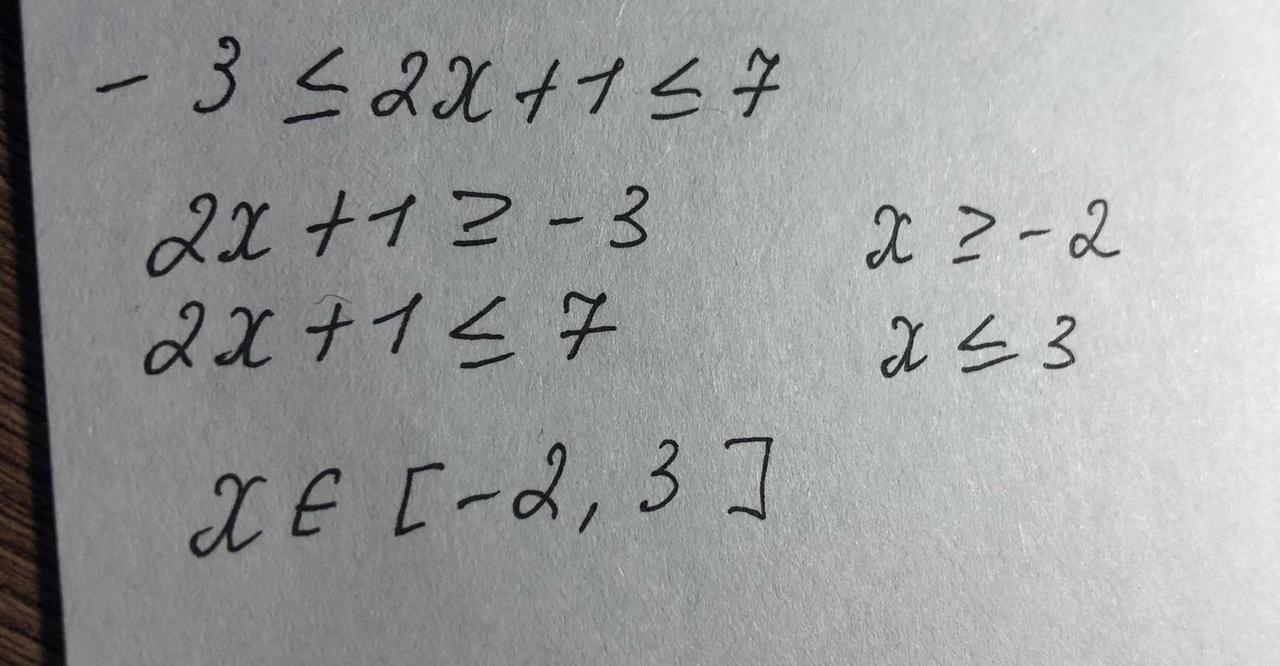 - 3 ≤ 2x + 1 ≤ 7
2x + 1 ≥ - 3 x ≥ - 2
2x + 1 ≤ 7 x ≤ 3
x ∈ [-2, 3]